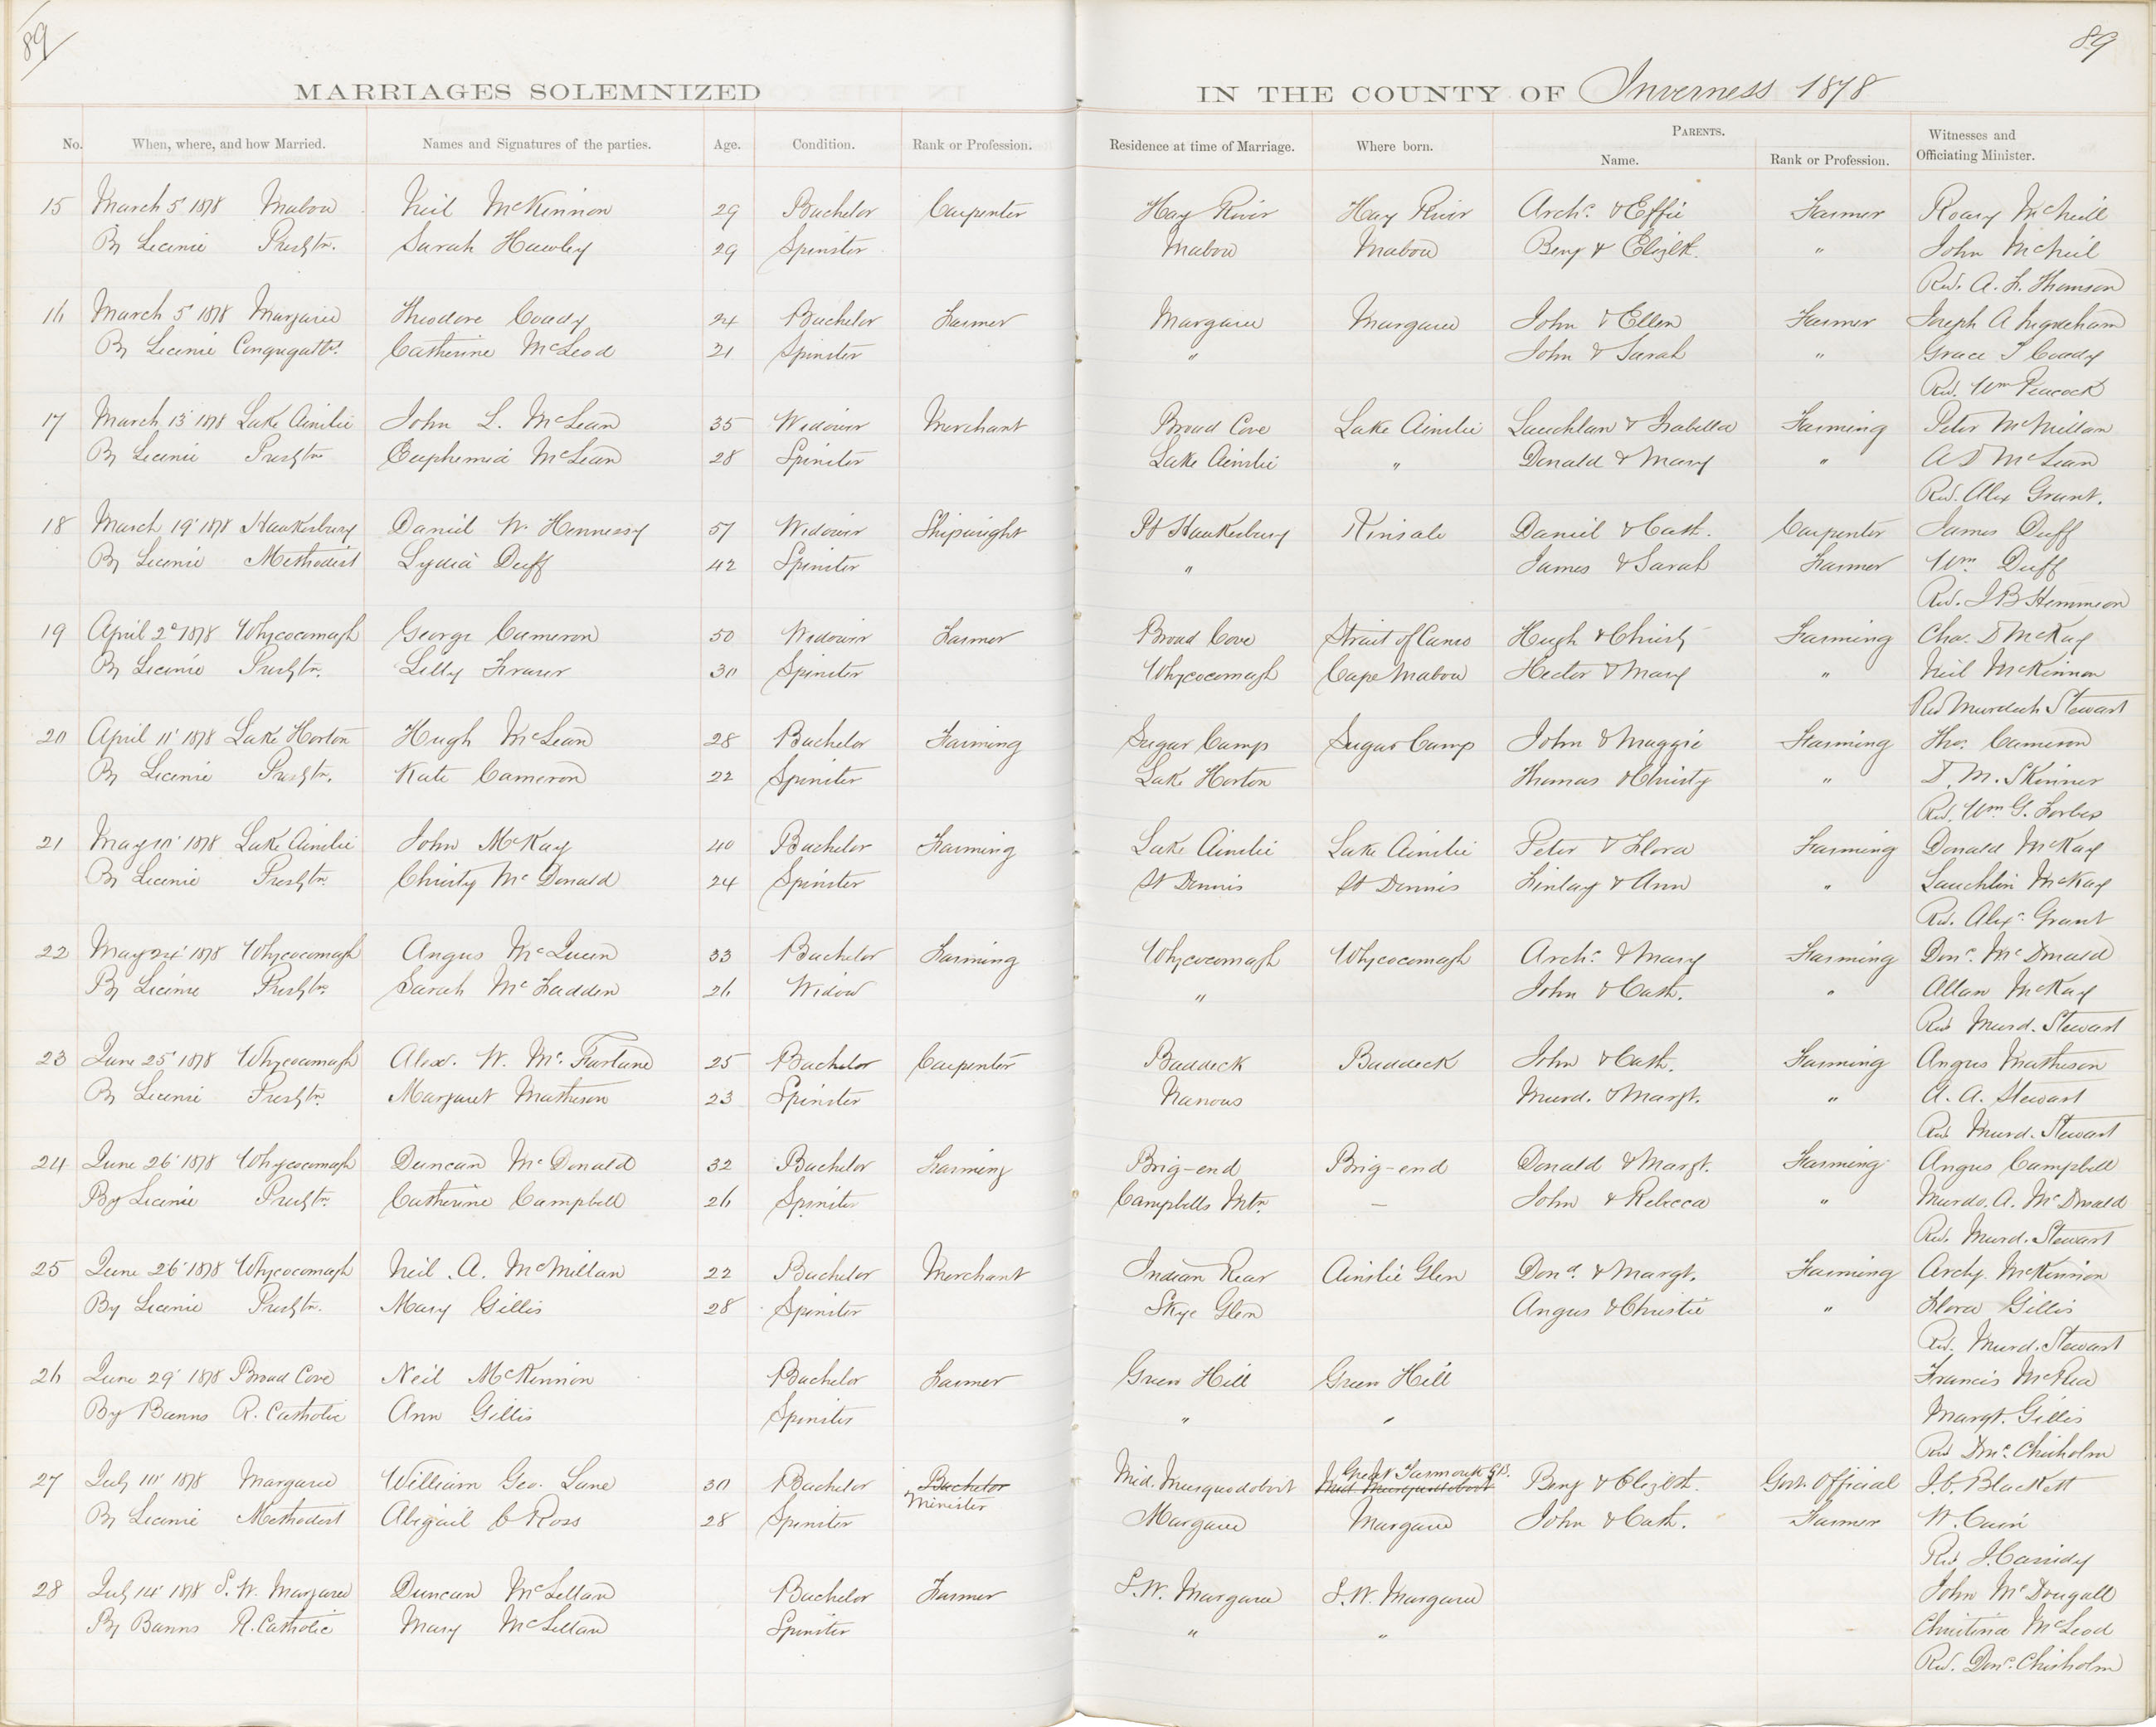 89
89
MARRIAGES SOLEMNIZED IN THE COUNTY OF Inverness 1878
No. When, where, and how Married. Names and Signatures of the parties. Age. Condition. Rank or Profession. Residence at time of Marriage. Where born. PARENTS. Name. Rank or Profession. Witnesses and Officiating Minister.
15 March 5' 1878 Mabou Neil McKinnon 29 Bachelor Carpenter Hay River Hay River Archd. & Effie Farmer Roary McNeill
By License Presbtn. Sarah Hawley 29 Spinster Mabou Mabou Benj & Elizbt. " John McNeil
Rev. A. F. Thomson
16 March 5' 1878 Margaree Theodore Coady 24 Bachelor Farmer Margaree Margaree John & Ellen Farmer Joseph A Ingraham
By License Congregattl. Catherine McLeod 21 Spinster " John & Sarah " Grace T Coady
Rev. Wm Peacock
17 March 13' 1878 Lake Ainslie John L. McLean 35 Widower Merchant Broad Cove Lake Ainslie Lauchlan & Isabella Farming Peter McMillan
By License Presbtn Euphemia McLean 28 Spinster Lake Ainslie " Donald & Mary " A D McLean
Rev. Alex Grant.
18 March 19' 1878 Hawkesbury Daniel W. Hennessy 57 Widower Shipwright Pt Hawkesbury Kinsale Daniel & Cath. Carpenter James Duff
By License Methodist Lydia Duff 42 Spinster " James & Sarah Farmer Wm. Duff
Rev. J B Hemmeon
19 April 2d 1878 Whycocomagh George Cameron 50 Widower Farmer Broad Cove Strait of Canso Hugh & Christy Farming Chas. D McKay
By License Presbtn. Lilly Fraser 30 Spinster Whycocomagh Cape Mabou Hector & Mary " Neil McKinnon
Rev Murdoch Stewart
20 April 11' 1878 Lake Horton Hugh McLean 28 Bachelor Farming Sugar Camp Sugar Camp John & Maggie Farming Thos. Cameron
By License Presbtn. Kate Cameron 22 Spinster Lake Horton Thomas & Christy " D. M. Skinner
Rev. Wm. G. Forbes
21 May 10' 1878 Lake Ainslie John McKay 40 Bachelor Farming Lake Ainslie Lake Ainslie Peter & Flora Farming Donald McKay
By License Presbtn. Christy McDonald 24 Spinster St Dennis St Dennis Finlay & Ann " Lauchlin McKay
Rev. Alexr. Grant
22 May 24' 1878 Whycocomagh Angus McQueen 33 Bachelor Farming Whycocomagh Whycocomagh Archd. & Mary Farming Dond. McDonald
By License Presbtn. Sarah McFadden 26 Widow " John & Cath. " Allan McKay
Rev Murd. Stewart
23 June 25' 1878 Whycocomagh Alex. W. McFarlane 25 Bachelor Carpenter Baddeck Baddeck John & Cath. Farming Angus Matheson
By License Presbtn. Margaret Matheson 23 Spinster Narrows Murd. & Margt. " A. A. Stewart
Rev Murd. Stewart
24 June 26' 1878 Whycocomagh Duncan McDonald 32 Bachelor Farming Brig-end Brig-end Donald & Margt. Farming Angus Campbell
By License Presbtn. Catherine Campbell 26 Spinster Campbells Mtn. — John & Rebecca " Murdo. A. McDonald
Rev. Murd. Stewart
25 June 26' 1878 Whycocomagh Neil A. McMillan 22 Bachelor Merchant Indian Rear Ainslie Glen Dond. & Margt. Farming Archy. McKinnon
By License Presbtn. Mary Gillis 28 Spinster Skye Glen Angus & Christie " Flora Gillis
Rev. Murd. Stewart
26 June 29' 1878 Broad Cove Neil McKinnon Bachelor Farmer Green Hill Green Hill Francis McRea
By Banns R. Catholic Ann Gillis Spinster " " Margt. Gillis
Rev Dond. Chisholm
27 July 10' 1878 Margaree William Geo. Lane 30 Bachelor Bachelor Minister Mid. Musquodoboit Great Yarmouth G.B. Mid Musquodoboit Benj & Elizbt. Govt. Official J. C. Blackett
By License Methodist Abigail C Ross 28 Spinster Margaree Margaree John & Cath. Farmer W. Cain
Rev J. Cassidy
28 July 14' 1878 S. W. Margaree Duncan McLellan Bachelor Farmer S.W. Margaree S.W. Margaree John McDougall
By Banns R. Catholic Mary McLellan Spinster " " Christina McLeod
Rev. Dond. Chisholm